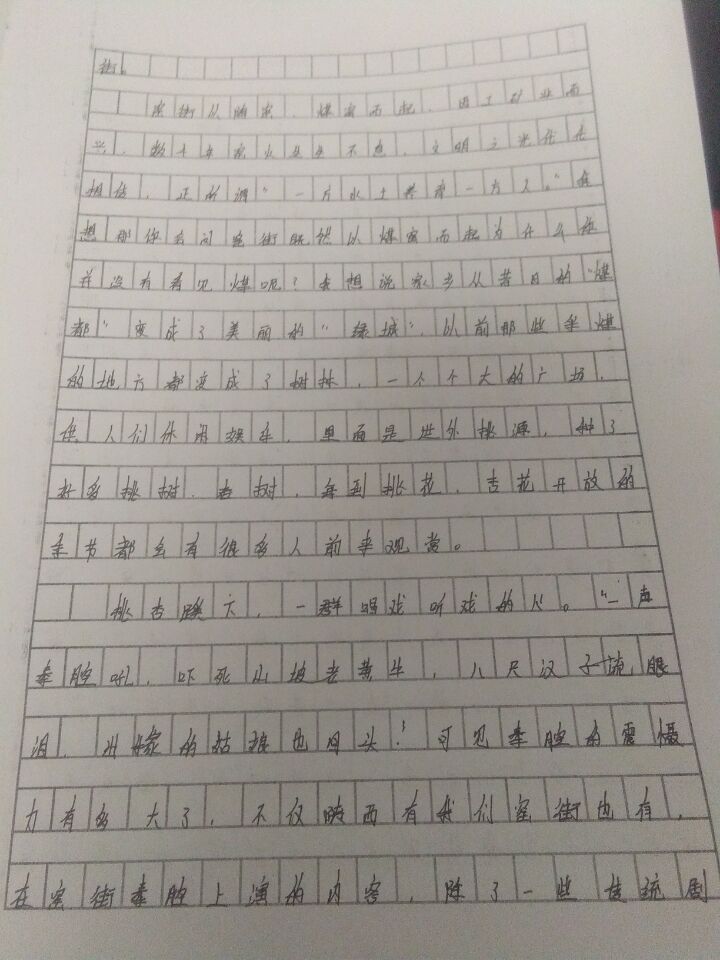 街。
窑街从陶窑、煤窑而起，因工矿业而
兴，数十年窑火生生不息，文明之光代代
相传，正所谓“一方水土养育一方人。”我
想那你会问窑街既然以煤窑而起为什么我
并没有看见煤呢？我想说家乡从昔日的“煤
都”变成了美丽的“绿城”，以前那些采煤
的地方都变成了树林，一个个大的广场，
供人们休闲娱乐，里面是世外桃源，种了
好多桃树、杏树，每到桃花、杏花开放的
季节都会有很多人前来观赏。
桃杏蹊六，一群唱戏听戏的人。“一声
秦腔吼，吓死山坡老黄牛，八尺汉子流眼
泪，出嫁的姑娘也回头！”可见秦腔的震慑
力有多大了，不仅陕西有我们窑街也有，
在窑街秦腔上演的内容，除了一些传统剧